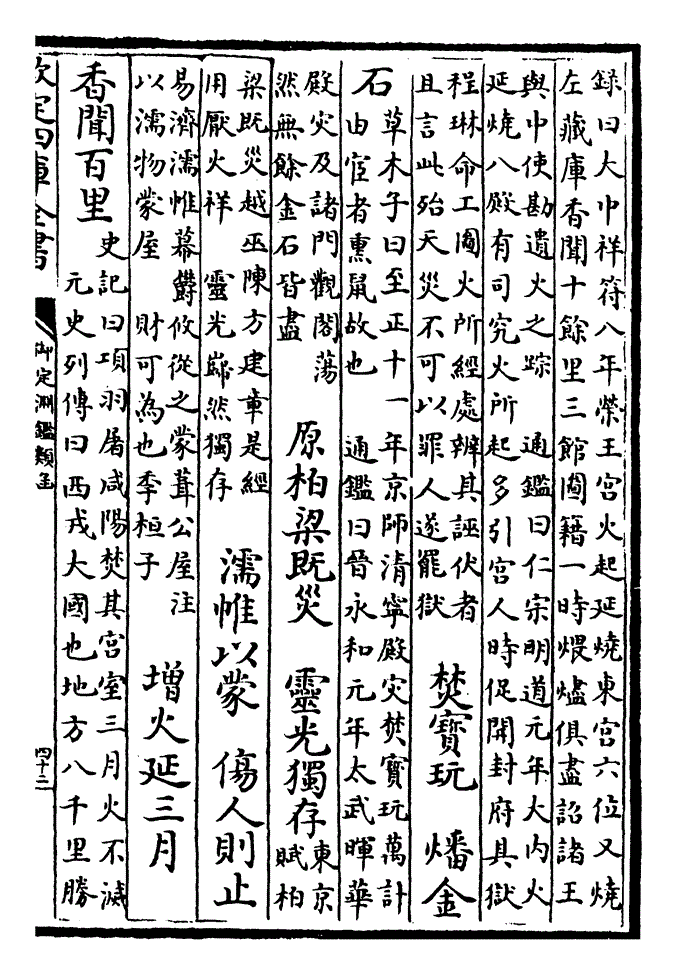 錄曰大中祥符八年榮王宮火起延燒東宮六位又燒
左藏庫香聞十餘里三館圖籍一時煨燼俱盡詔諸王
與中使勘遺火之踪　通鑑曰仁宗明道元年大内火
延燒八殿有司究火所起多引宮人時促開封府具獄
程琳命工圖火所經處辨其誣伏者
且言此殆天災不可以罪人遂罷獄
焚寶玩　燔金
石
草木子曰至正十一年京師清寧殿灾焚寶玩萬計
由宦者熏鼠故也　通鑑曰晉永和元年太武暉華
殿灾及諸門觀閣蕩
然無餘金石皆盡
原柏梁既災　靈光獨存
東京
賦柏
梁既災越巫陳方建章是經
用厭火祥　靈光巋然獨存
濡帷以蒙　傷人則止
易濟濡帷幕鬱攸從之蒙葺公屋注
以濡物蒙屋　財可為也季桓子
增火延三月
香聞百里
史記曰項羽屠咸陽焚其宮室三月火不滅
元史列傳曰西戎大國也地方八千里勝
欽定四庫全書
御定淵鑑類函
四十二